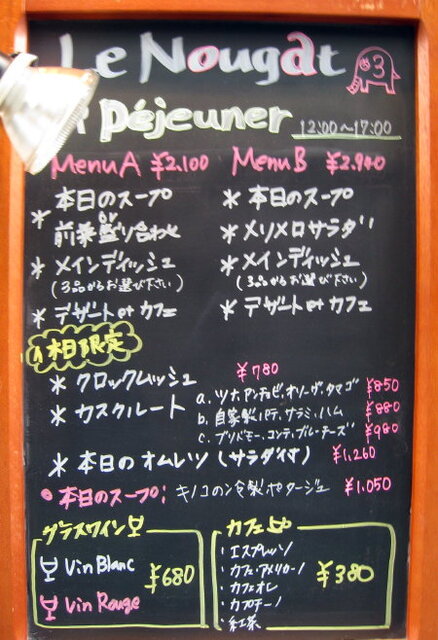 Le Nougat 3
Déjeuner 12:00〜17:00
Menu A ¥2.100
* 本日のスープ
or
前菜盛り合わせ
* メインディッシュ
(3品からお選び下さい)
* デザート et カフェ
Menu B ¥2.940
* 本日のスープ
* メリメロサラダ
* メインディッシュ
(3品からお選び下さい)
* デザート et カフェ
平日限定
* クロックムッシュ ¥780
* カスクルート a. ツナ、アンチョビ、オリーヴ、タマゴ ¥850
b. 自家製パテ、サラミ、ハム ¥880
c. ブリドモー、コンテ、ブルーチーズ ¥980
* 本日のオムレツ (サラダ付) ¥1,260
本日のスープ: キノコの冷製ポタージュ ¥1,050
グラスワイン
Vin Blanc
Vin Rouge
¥680
カフェ
・エスプレッソ
・カフェ・アメリカーノ
・カフェオレ
・カプチーノ
・紅茶
¥380